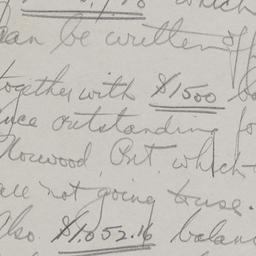 which
can be written off
together with $1500 ba
nce outstanding fo
Norwood Prt. which
are not going to use.
Also $1,052.16 balan